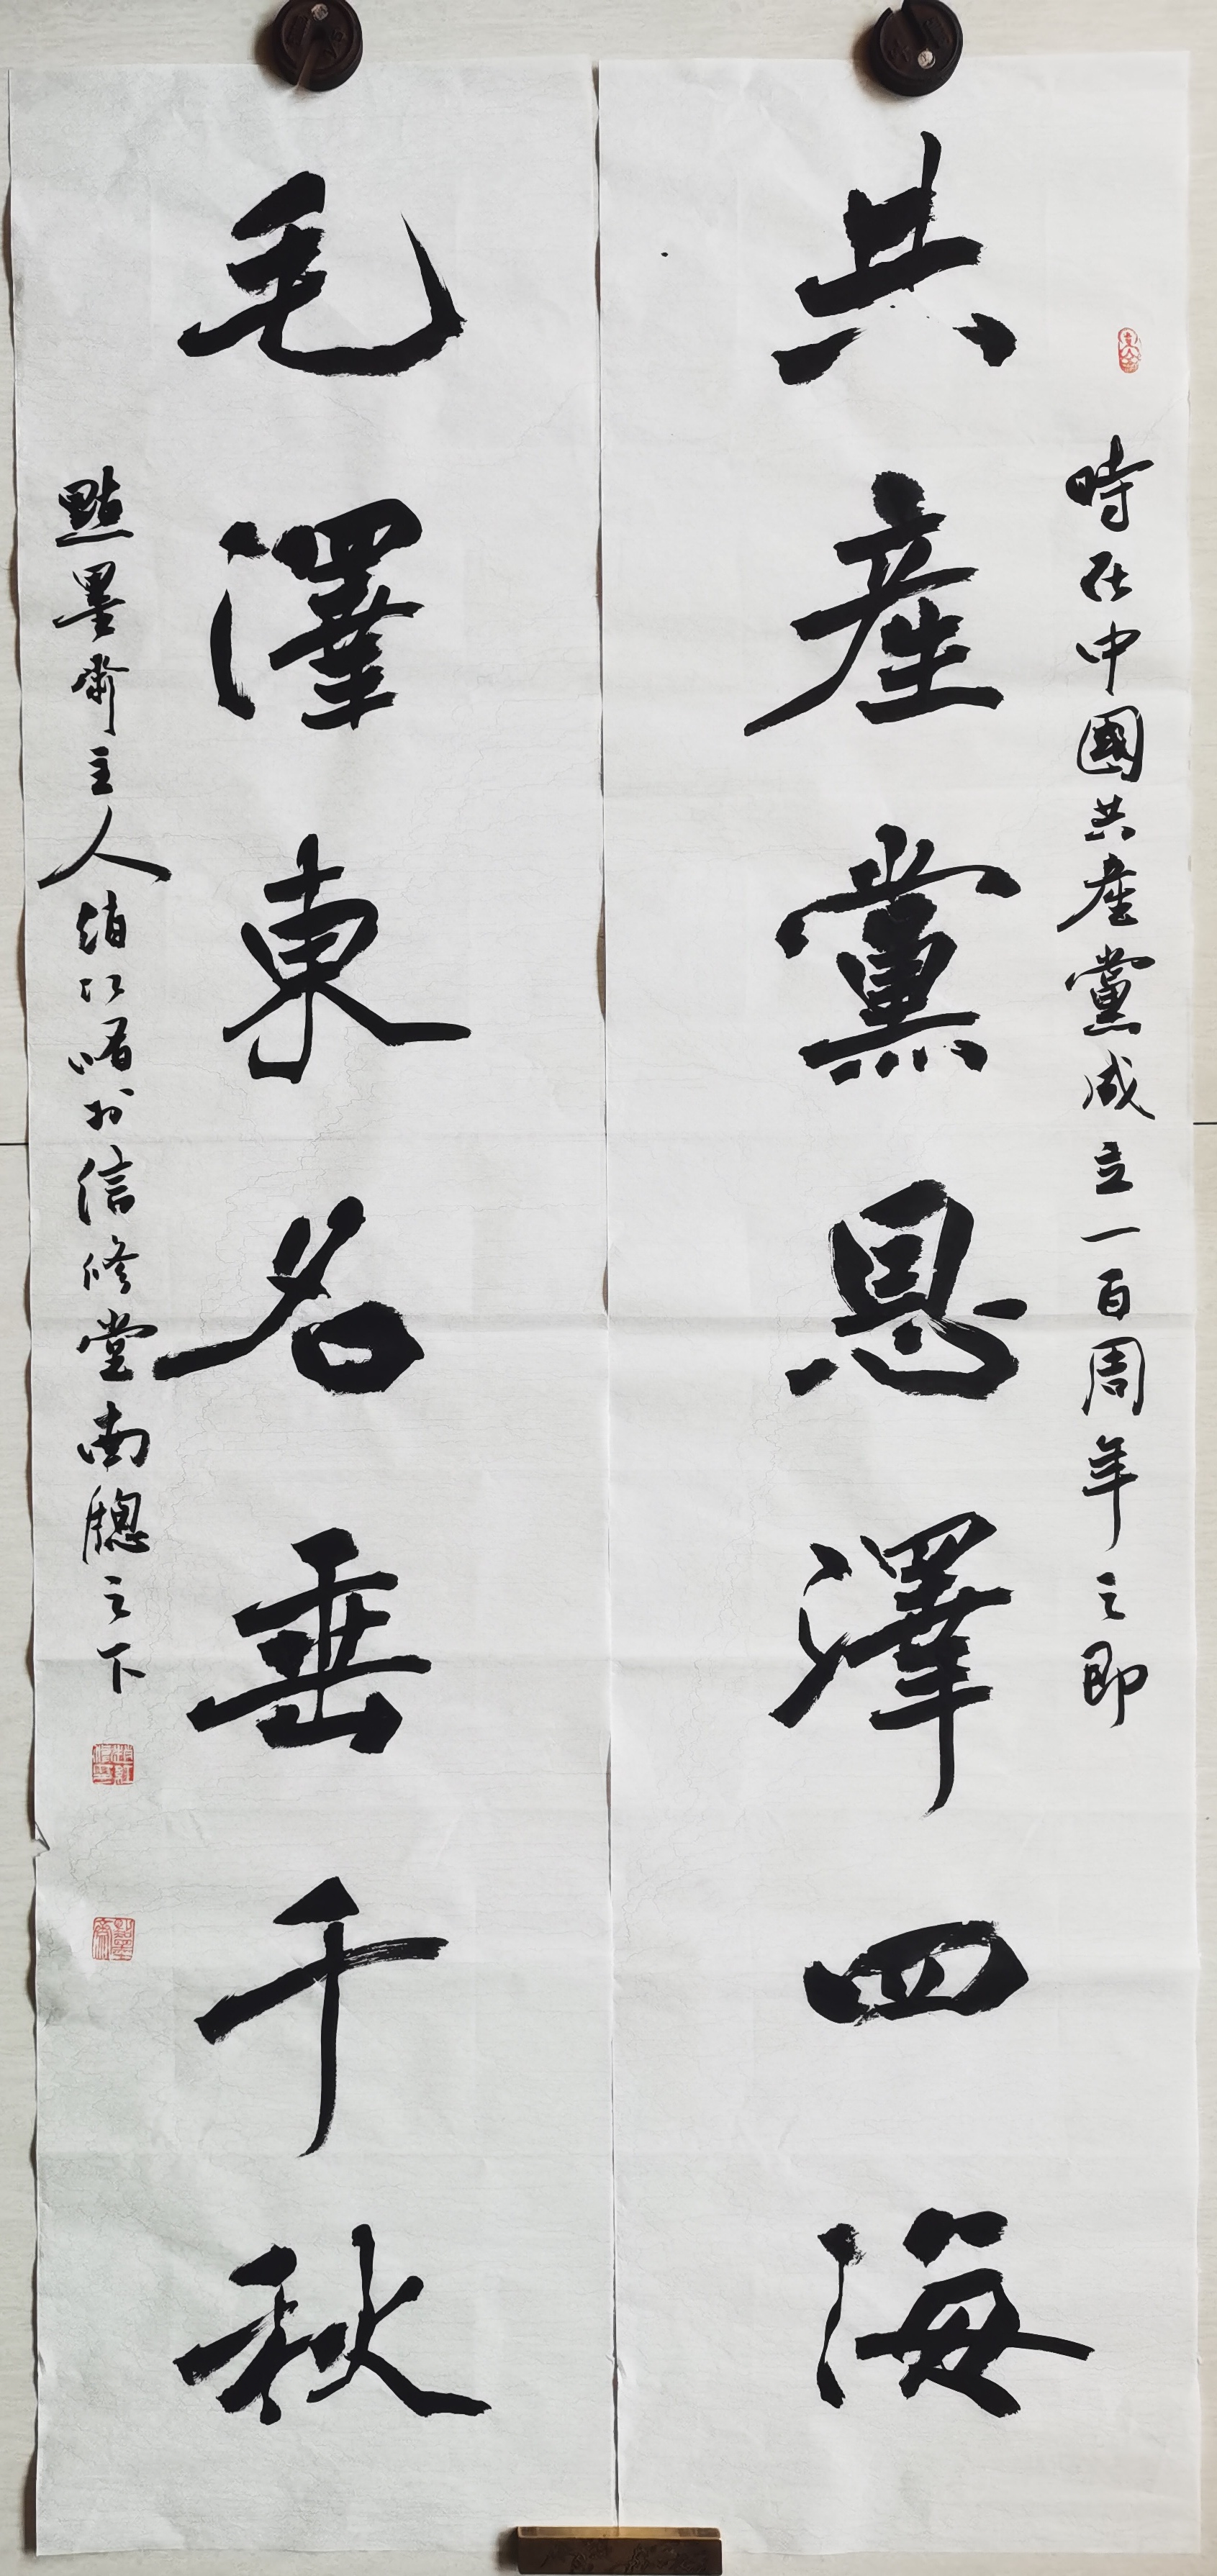 時在中國共產黨成立一百周年之即
共產黨恩澤四海
毛澤東名垂千秋
點墨齋主人趙江濤書於信修堂南牕之下